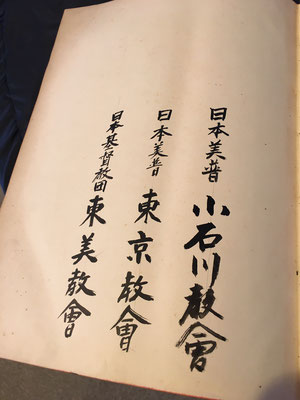 日本美普 小石川教會
日本美普 東京教會
日本基督教団 東美教會